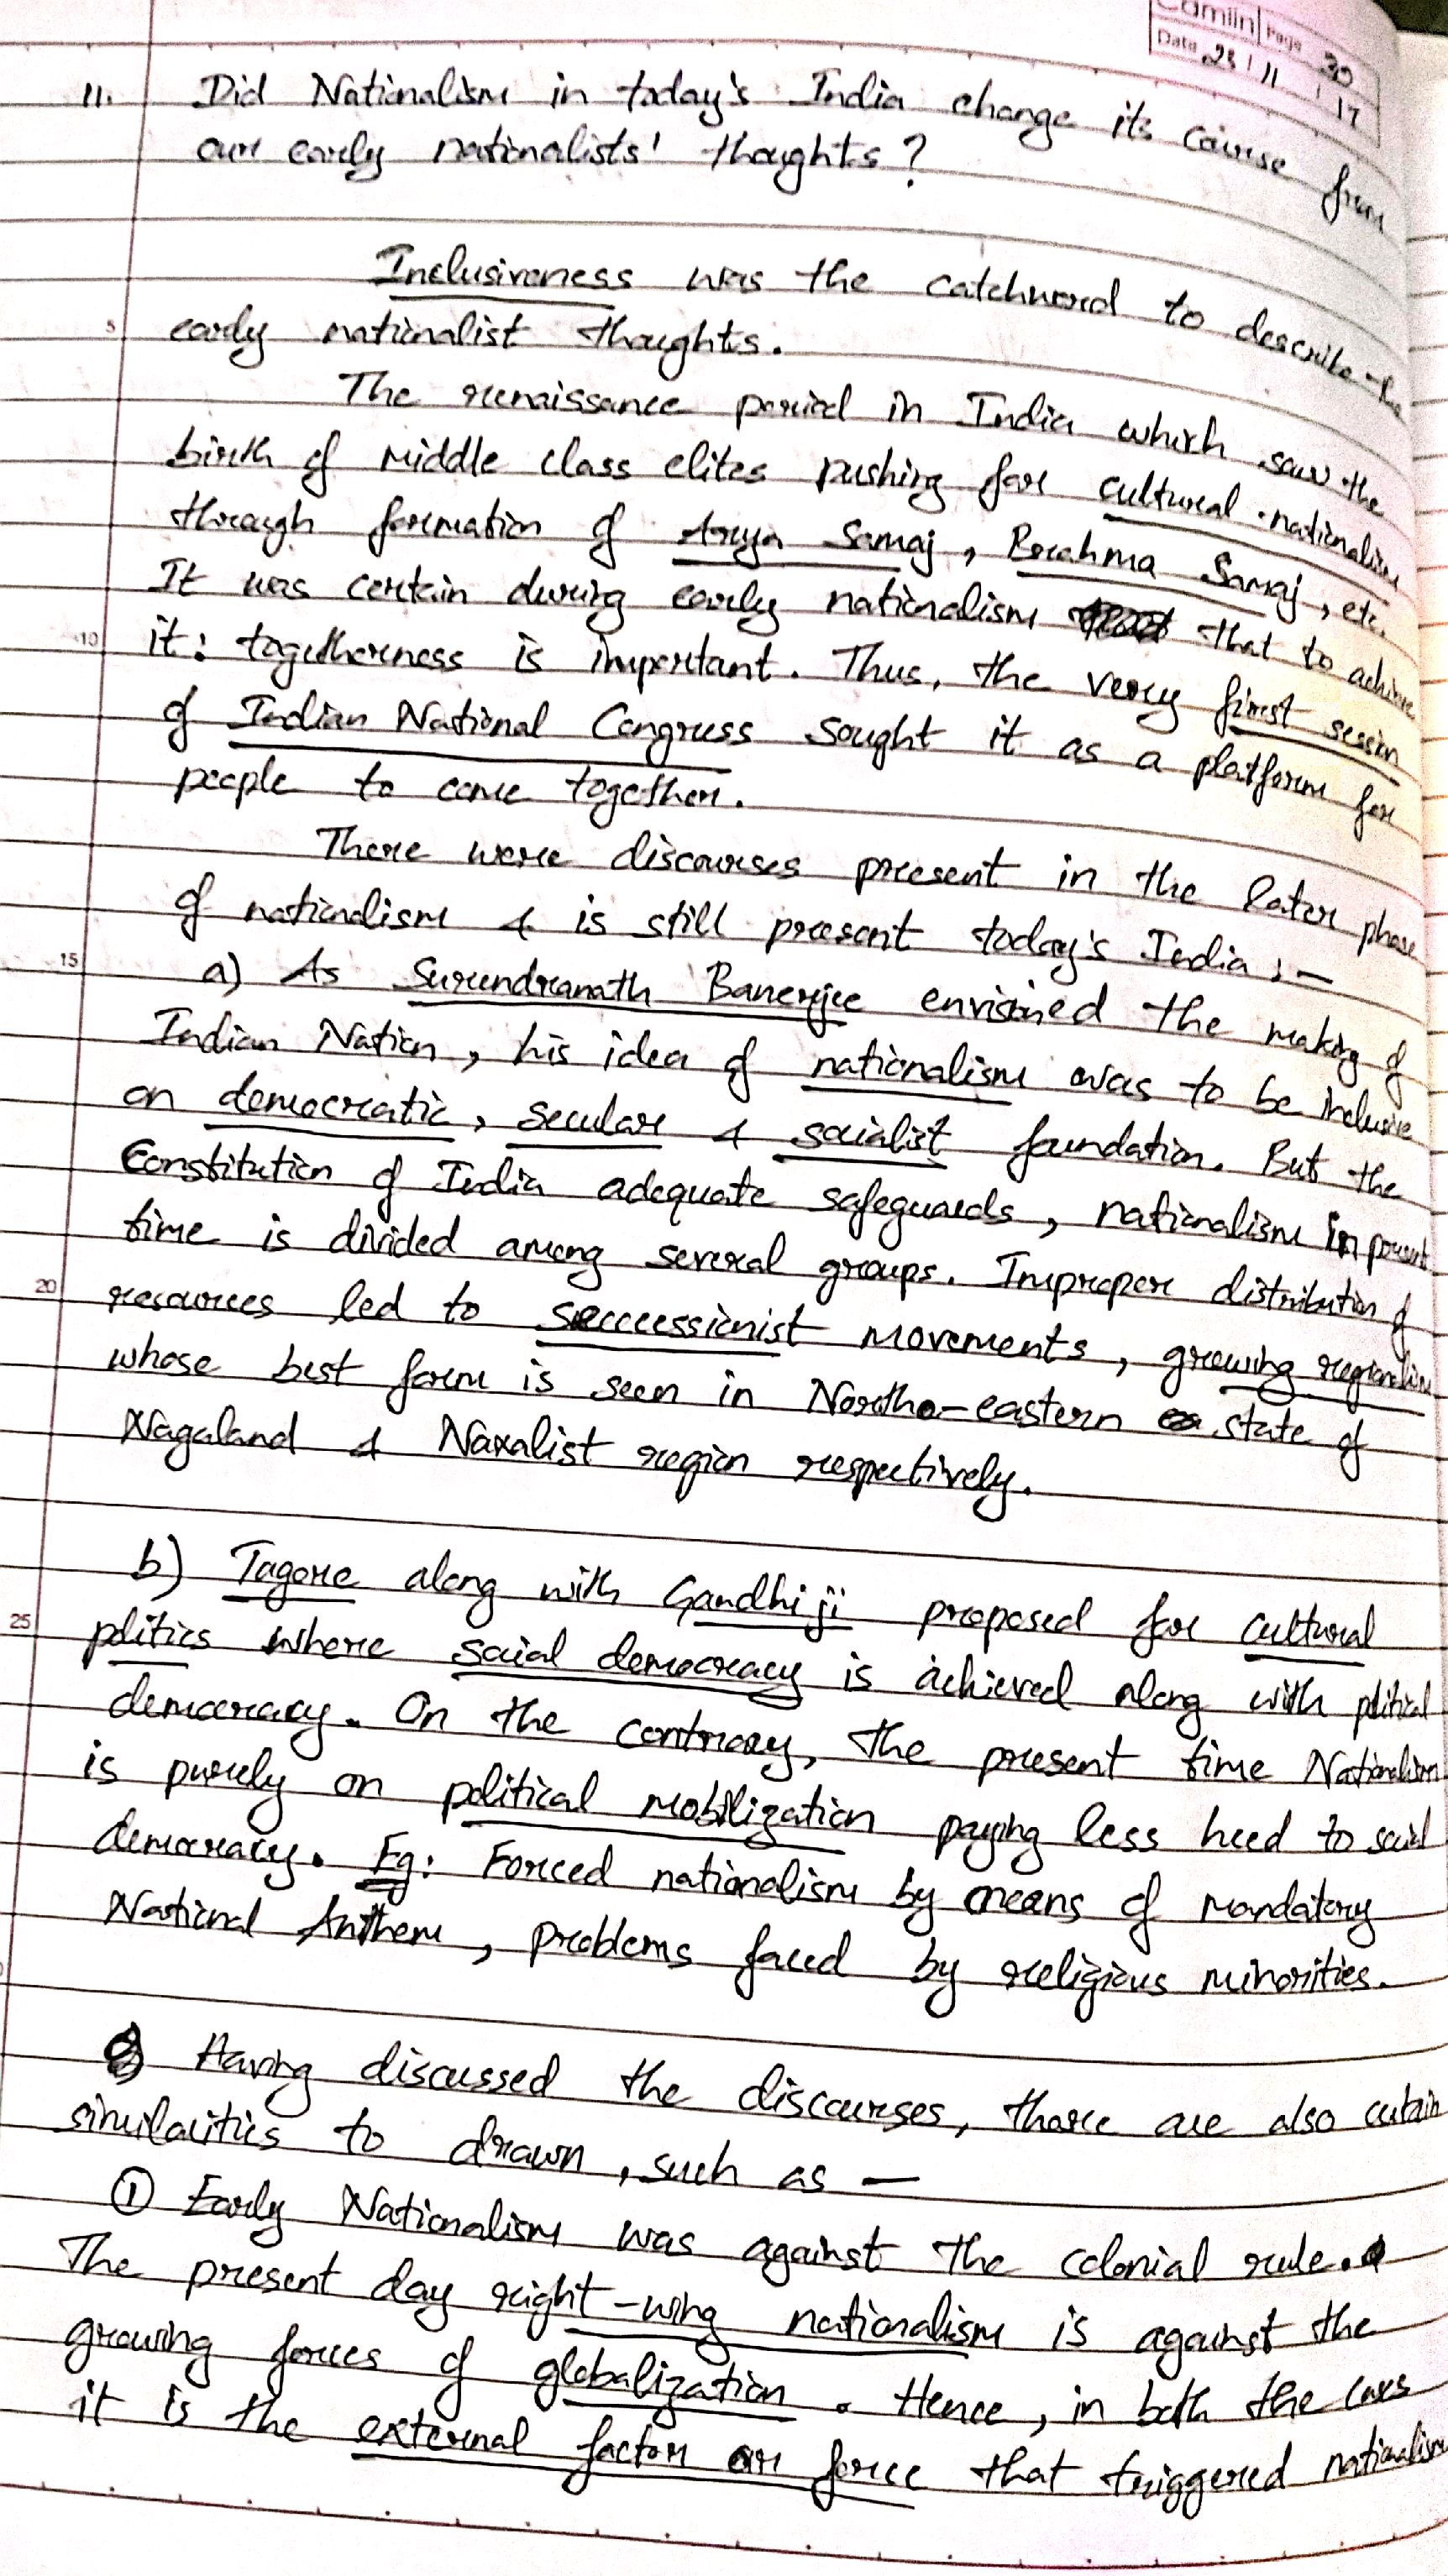 Camlin Page 30
Date 23 / 11 / 17
11. Did Nationalism in today's India change its course from
our early nationalists' thoughts?
Inclusiveness was the catchword to describe the
5 early nationalist thoughts.
The renaissance period in India which saw the
birth of middle class elites pushing for cultural nationalism
through formation of Arya Samaj, Brahma Samaj, etc.
It was certain during early nationalism that to achieve
10 it: togetherness is important. Thus, the very first session
of Indian National Congress sought it as a platform for
people to come together.
There were discourses present in the later phase
of nationalism & is still present today's India :—
15 a) As Surendranath Banerjee envisined the making of
Indian Nation, his idea of nationalism was to be inclusive
on democratic, secular & socialist foundation. But the
Constitution of India adequate safeguards, nationalism in present
time is divided among several groups. Improper distribution of
20 resources led to seccessionist movements, growing regionalism
whose best form is seen in North-eastern state of
Nagaland & Naxalist region respectively.
b) Tagore along with Gandhiji proposed for cultural
25 politics where social democracy is achieved along with political
democracy. On the contrary, the present time Nationalism
is purely on political mobilization paying less heed to social
democracy. Eg: Forced nationalism by means of mandatory
National Anthem, problems faced by religious minorities.
Having discussed the discourses, there are also certain
similarities to drawn, such as —
① Early Nationalism was against the colonial rule.
The present day right-wing nationalism is against the
growing forces of globalization. Hence, in both the cases
it is the external factor or force that triggered nationalism